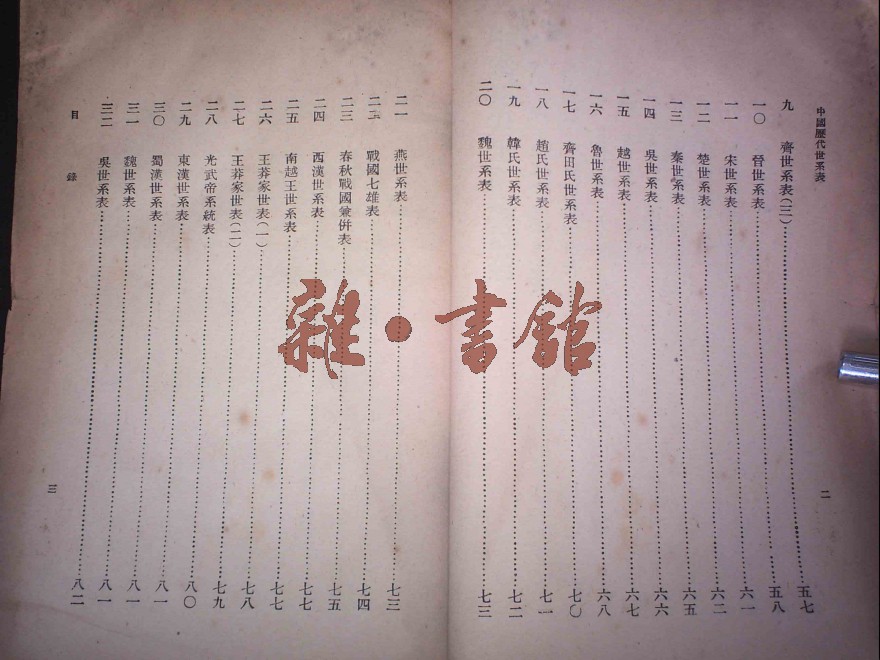 中國歷代世系表
二
九 齊世系表(三)……五七
一〇 晉世系表……五八
一一 宋世系表……六一
一二 楚世系表……六二
一三 秦世系表……六五
一四 吳世系表……六六
一五 越世系表……六七
一六 魯世系表……六八
一七 齊田氏世系表……七〇
一八 趙氏世系表……七一
一九 韓氏世系表……七二
二〇 魏世系表……七三
二一 燕世系表……七三
二二 戰國七雄表……七四
二三 春秋戰國兼併表……七五
二四 西漢世系表……七七
二五 南越王世系表……七七
二六 王莽家世表(一)……七八
二七 王莽家世表(二)……七九
二八 光武帝系統表……八〇
二九 東漢世系表……八一
三〇 蜀漢世系表……八一
三一 魏世系表……八一
三二 吳世系表……八二
目錄
三
雜·書館